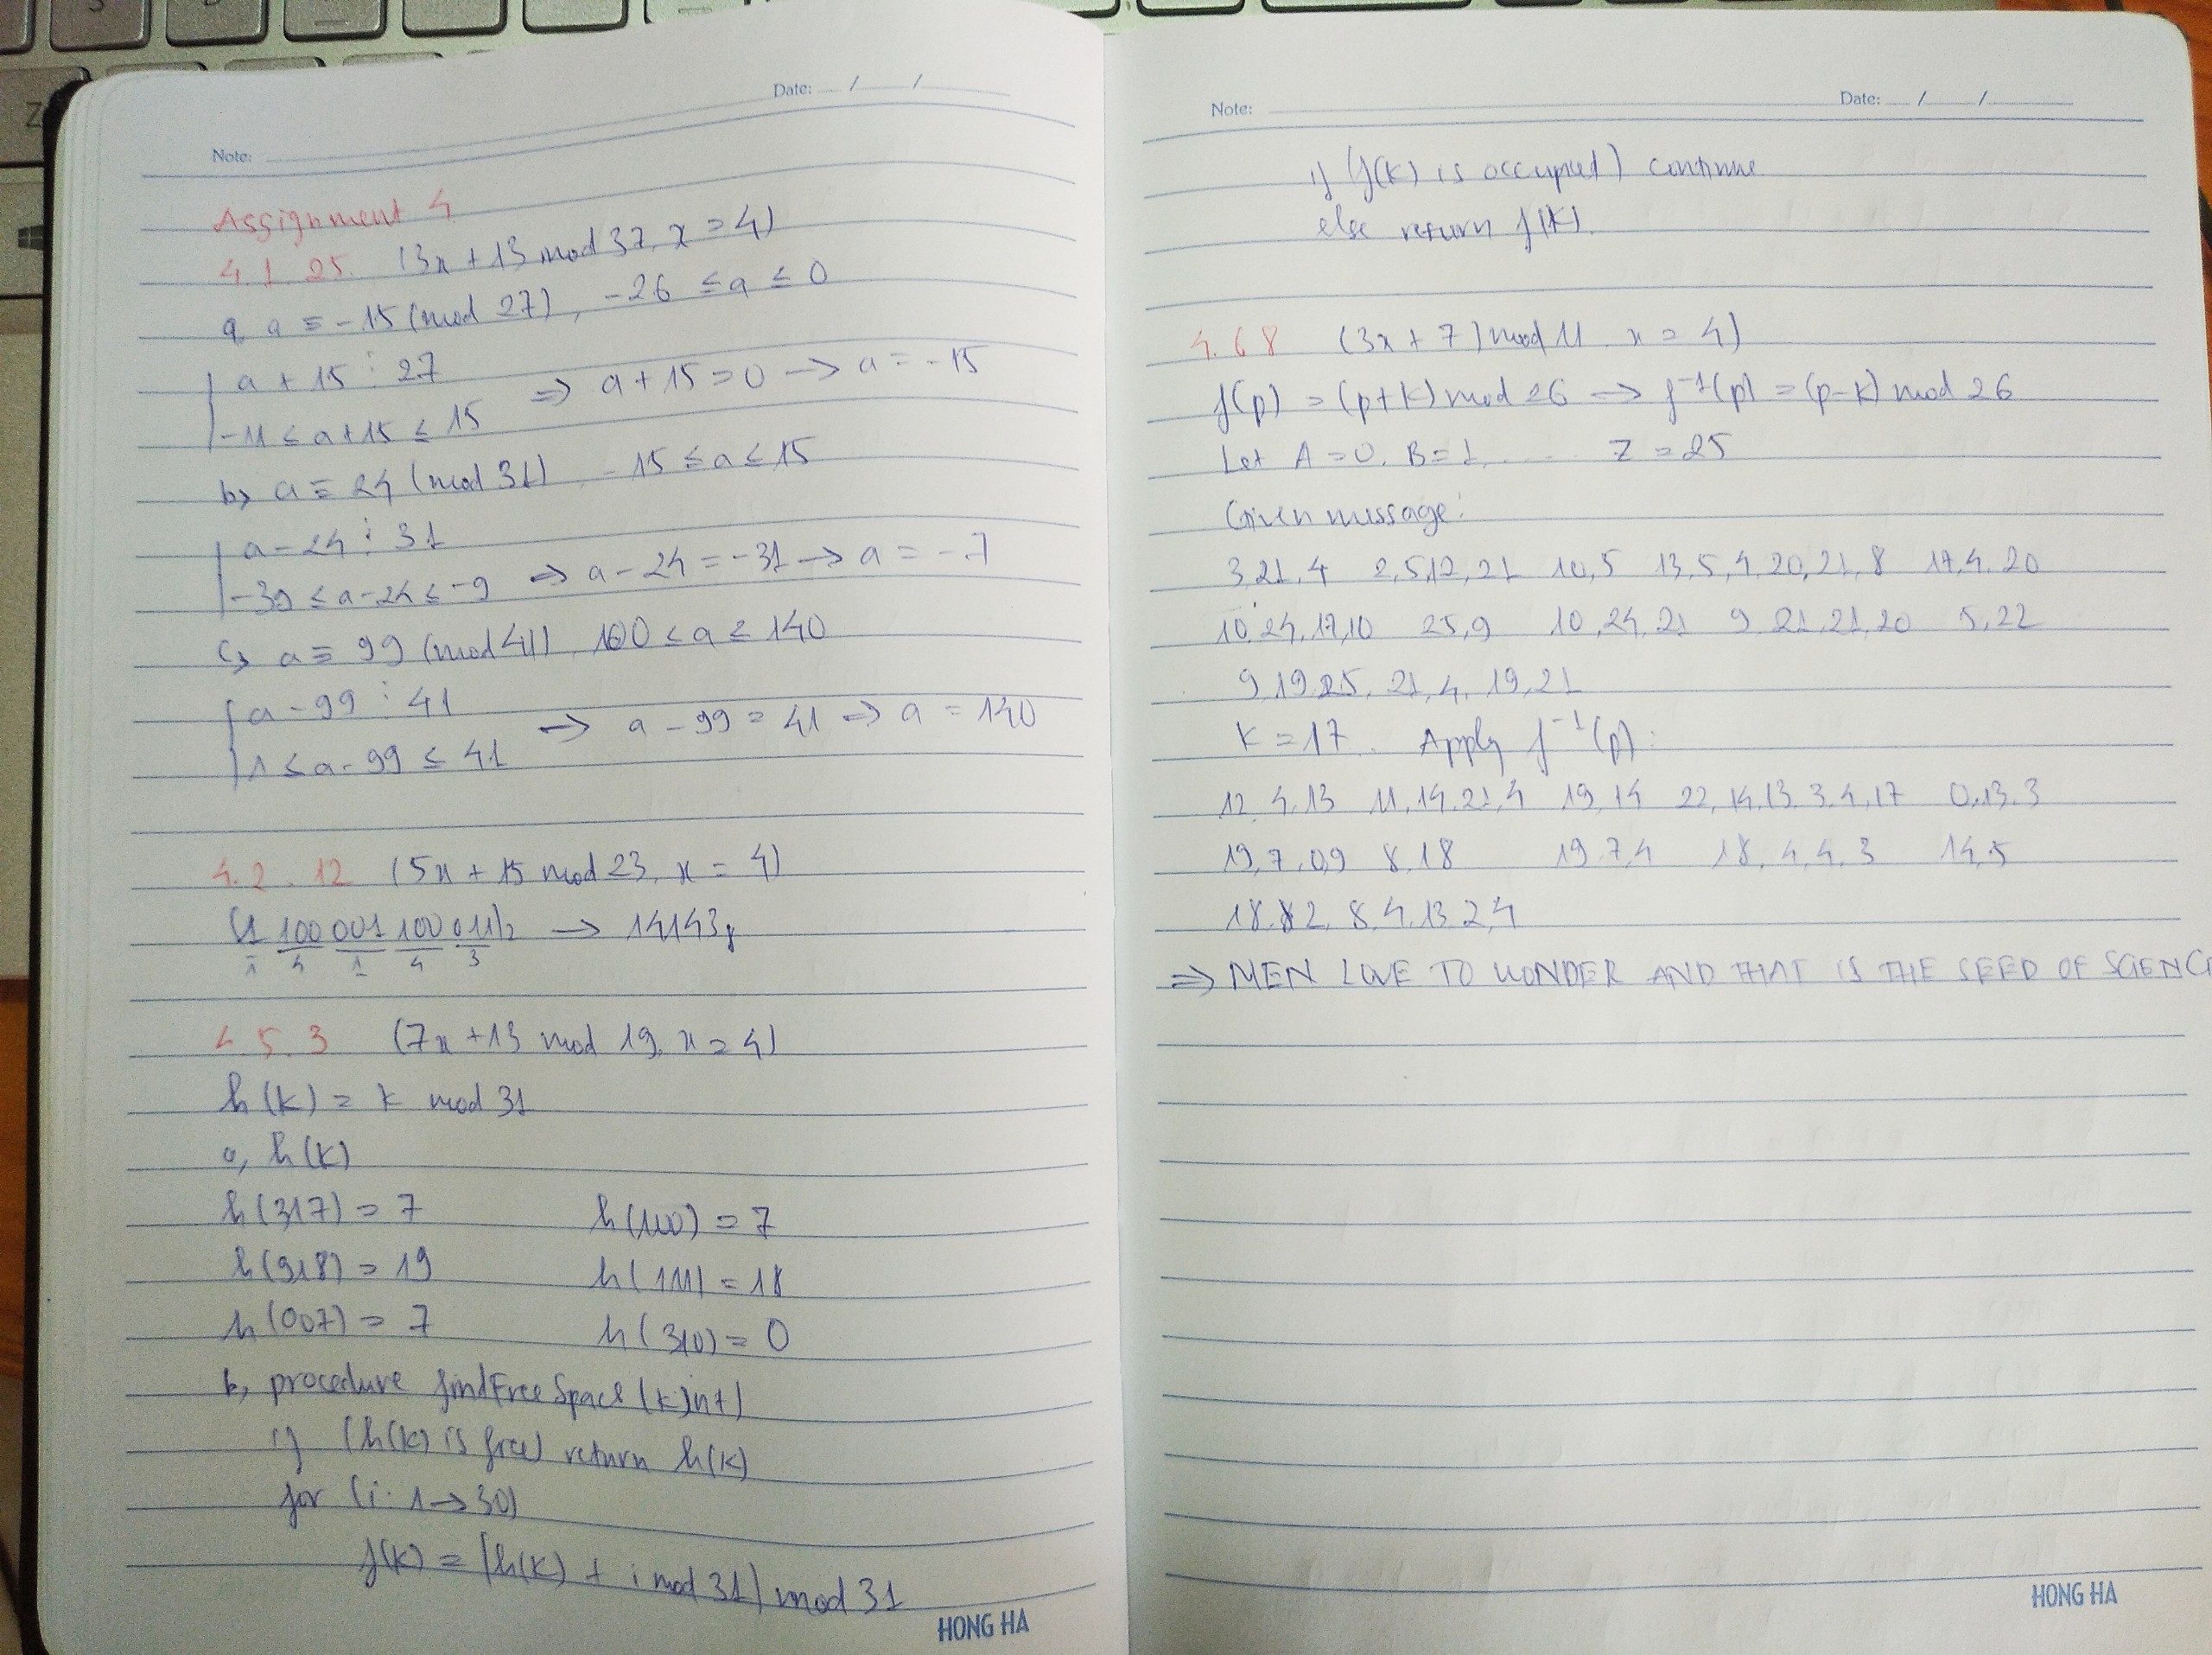 Date: / /
Note:
Assignment 4
4.1 25. (3x + 13 mod 37, x = 4)
a, a ≡ -15 (mod 27), -26 ≤ a ≤ 0
a + 15 ⋮ 27
-11 ≤ a+15 ≤ 15 => a + 15 = 0 -> a = -15
b, a ≡ 24 (mod 31), -15 ≤ a ≤ 15
a - 24 ⋮ 31
-39 ≤ a-24 ≤ -9 => a - 24 = -31 -> a = -7
c, a ≡ 99 (mod 41), 100 ≤ a ≤ 140
a - 99 ⋮ 41
1 ≤ a - 99 ≤ 41 -> a - 99 = 41 => a = 140
4.2. 12 (5x + 15 mod 23, x = 4)
(1 100 001 100 011)2 -> 141438
1 4 1 4 3
4.5.3 (7x + 13 mod 19, x = 4)
h(k) = k mod 31
a, h(k)
h(317) = 7 h(100) = 7
h(918) = 19 h(111) = 18
h(007) = 7 h(310) = 0
b, procedure findFreeSpace (k: int)
if (h(k) is free) return h(k)
for (i: 1 -> 30)
f(k) = (h(k) + i mod 31) mod 31
HONG HA
Note: Date: / /
if (f(k) is occupied) continue
else return f(k).
4.6 8 (3x + 7) mod 11 x = 4)
f(p) = (p+k) mod 26 -> f⁻¹(p) = (p-k) mod 26
Let A = 0, B = 1, .... Z = 25
Given message:
3,21,4 2,5,12,21 10,5 13,5,4,20,21,8 17,4,20
10,24,17,10 25,9 10,24,21 9,21,21,20 5,22
9,19,25,21,4,19,21
k = 17. Apply f⁻¹(p):
12,4,13 11,14,21,4 19,14 22,14,13,3,4,17 0,13,3
19,7,0,9 8,18 19,7,4 18,4,4,3 14,5
18, 2, 8,4,13,2,4
=> MEN LOVE TO WONDER AND THAT IS THE SEED OF SCIENC
HONG HA